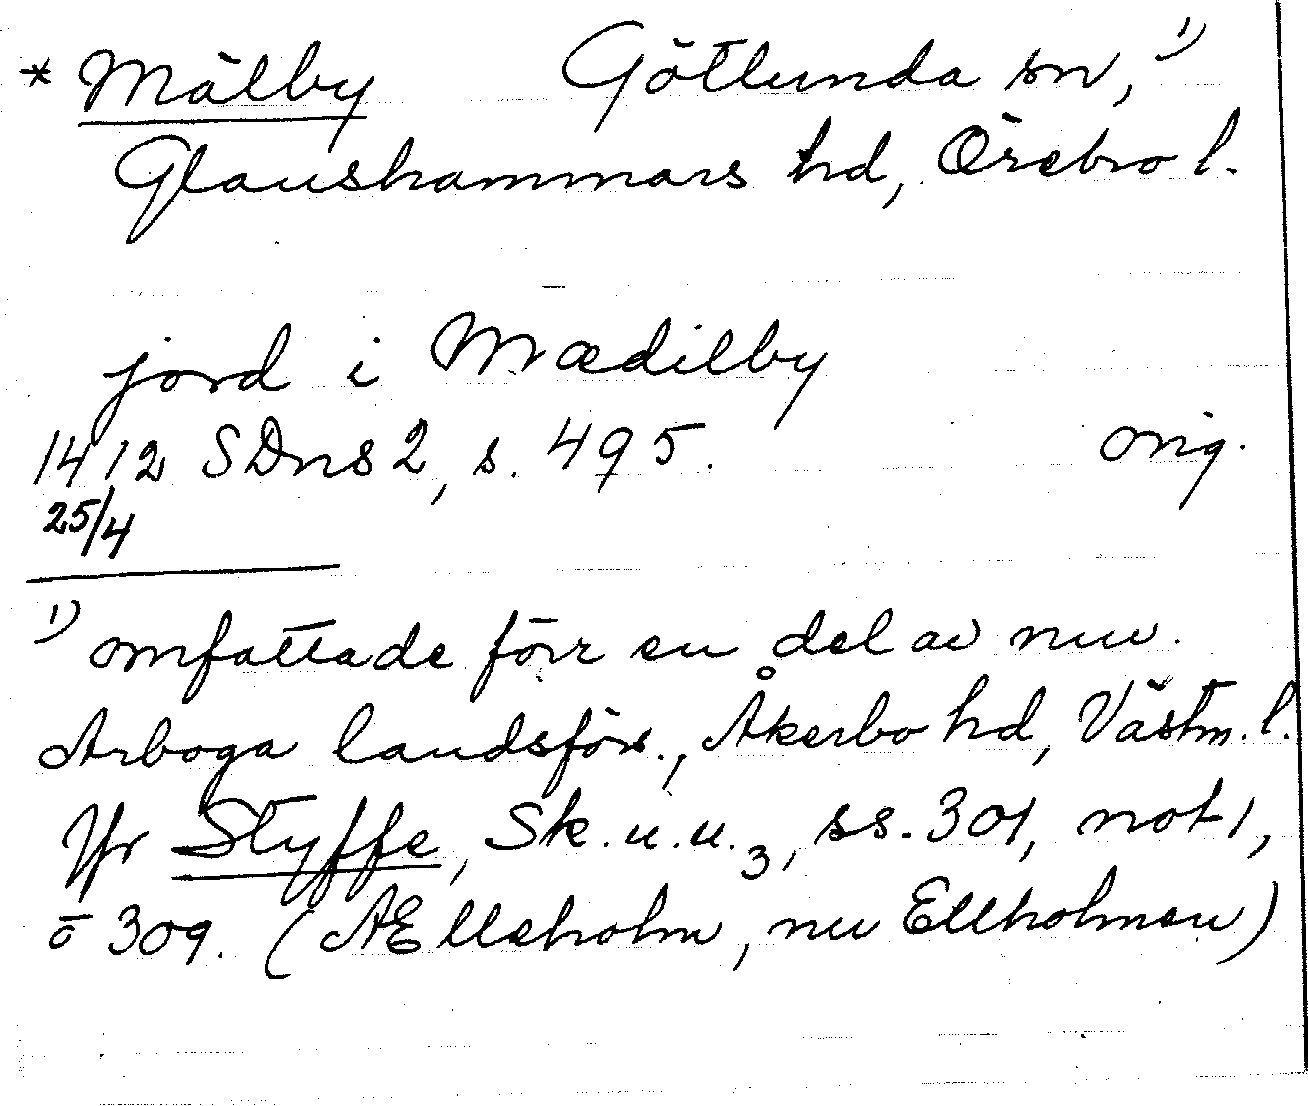 * Mälby Götlunda sn, 1)
Glanshammars hd, Örebro l.
jord i Mædilby
1412 SDns 2, s. 495. orig.
25/4
1) omfattade förr en del av nuv.
Arboga landsförs., Åkerbo hd, Västm. l.
Jfr Styffe, Sk. u. u. 3, ss. 301, not 1,
o 309. (ÆElleholm, nu Ellholmen)